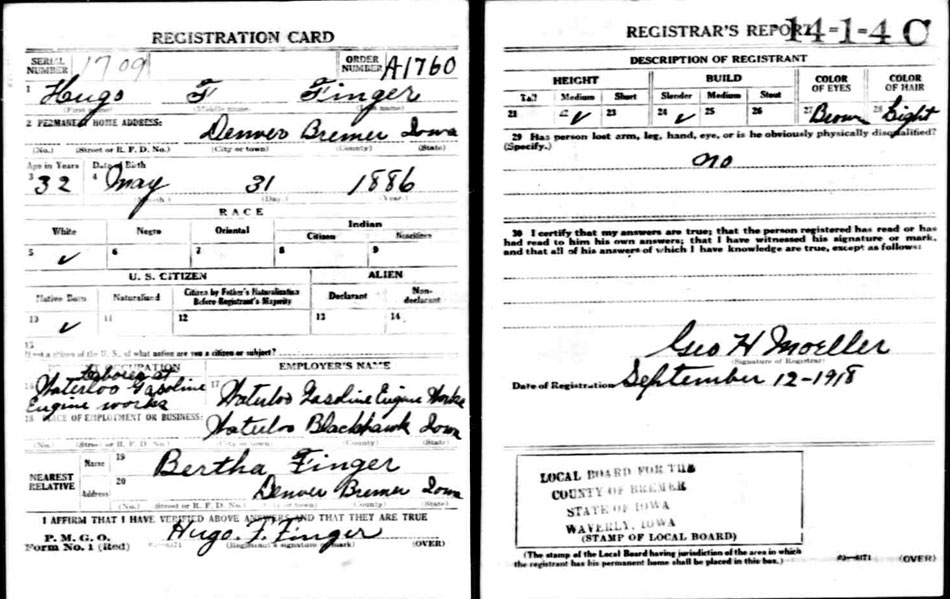 REGISTRATION CARD
SERIAL NUMBER 1709 ORDER NUMBER A1760
1 Hugo F Finger
(Middle name)
2 PERMANENT HOME ADDRESS: Denver Bremer Iowa
(No.) (Street or R. F. D. No.) (City or town) (County) (State)
Age in Years Date of Birth
3 32 4 May 31 1886
(Month.) (Day.) (Year.)
RACE
White Negro Oriental Indian
Citizen Noncitizen
5 ✓ 6 7 8 9
U. S. CITIZEN ALIEN
Native Born Naturalized Citizen by Father's Naturalization Before Registrant's Majority Declarant Non-declarant
10 ✓ 11 12 13 14
15
If not a citizen of the U. S., of what nation are you a citizen or subject?
OCCUPATION EMPLOYER'S NAME
16 Laborer at Waterloo Gasoline Engine works 17 Waterloo Gasoline Engine Works
18 PLACE OF EMPLOYMENT OR BUSINESS: Waterloo Blackhawk Iowa
(No.) (Street or R. F. D. No.) (City or town) (County) (State)
NEAREST RELATIVE
Name 19 Bertha Finger
Address 20 Denver Bremer Iowa
(No.) (Street or R. F. D. No.) (City or town) (County) (State)
I AFFIRM THAT I HAVE VERIFIED ABOVE ANSWERS AND THAT THEY ARE TRUE
P. M. G. O.
Form No. 1 (Red) Hugo. F. Finger
(Registrant's signature or mark) (OVER)
REGISTRAR'S REPORT 14-1-4 C
DESCRIPTION OF REGISTRANT
HEIGHT BUILD COLOR OF EYES COLOR OF HAIR
Tall Medium Short Slender Medium Stout
21 22 ✓ 23 24 ✓ 25 26 27 Brown 28 Light
29 Has person lost arm, leg, hand, eye, or is he obviously physically disqualified?
(Specify.) no
30 I certify that my answers are true; that the person registered has read or has
had read to him his own answers; that I have witnessed his signature or mark,
and that all of his answers of which I have knowledge are true, except as follows:
Geo H Moeller
(Signature of Registrar)
Date of Registration September 12-1918
LOCAL BOARD FOR THE
COUNTY OF BREMER
STATE OF IOWA
WAVERLY, IOWA
(STAMP OF LOCAL BOARD)
(The stamp of the Local Board having jurisdiction of the area in which
the registrant has his permanent home shall be placed in this box.)
(OVER)